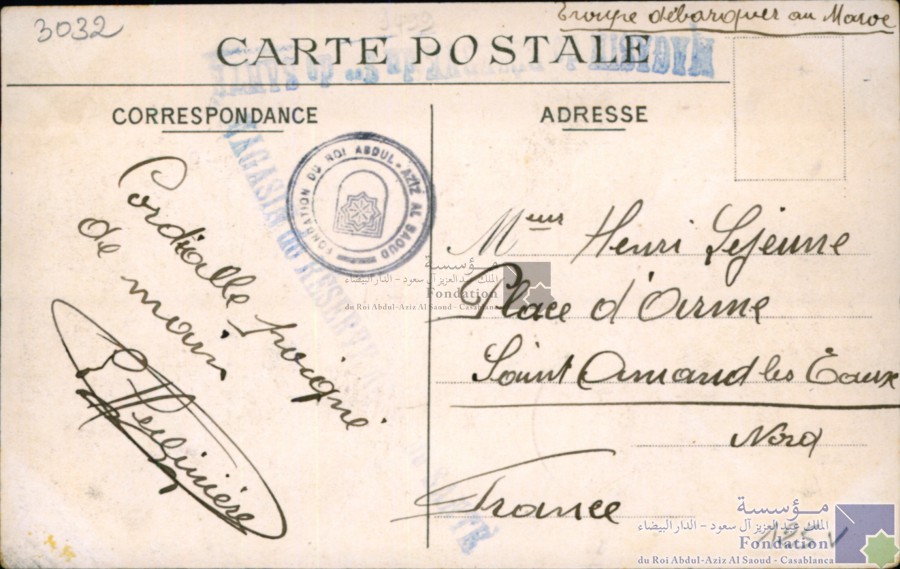 3032
Troupe débarquer au Maroc
CARTE POSTALE
CORRESPONDANCE
ADRESSE
MAGASIN DU RÉSERVE
FONDATION DU ROI ABDUL-AZIZ AL SAOUD
Cordialle poigné
de main
Mme Henri Lejeune
Place d'Arme
Saint Amand les Eaux
Nord
France
مؤسسة
الملك عبد العزيز آل سعود - الدار البيضاء
Fondation
du Roi Abdul-Aziz Al Saoud - Casablanca
مؤسسة
الملك عبد العزيز آل سعود - الدار البيضاء
Fondation
du Roi Abdul-Aziz Al Saoud - Casablanca
125 V